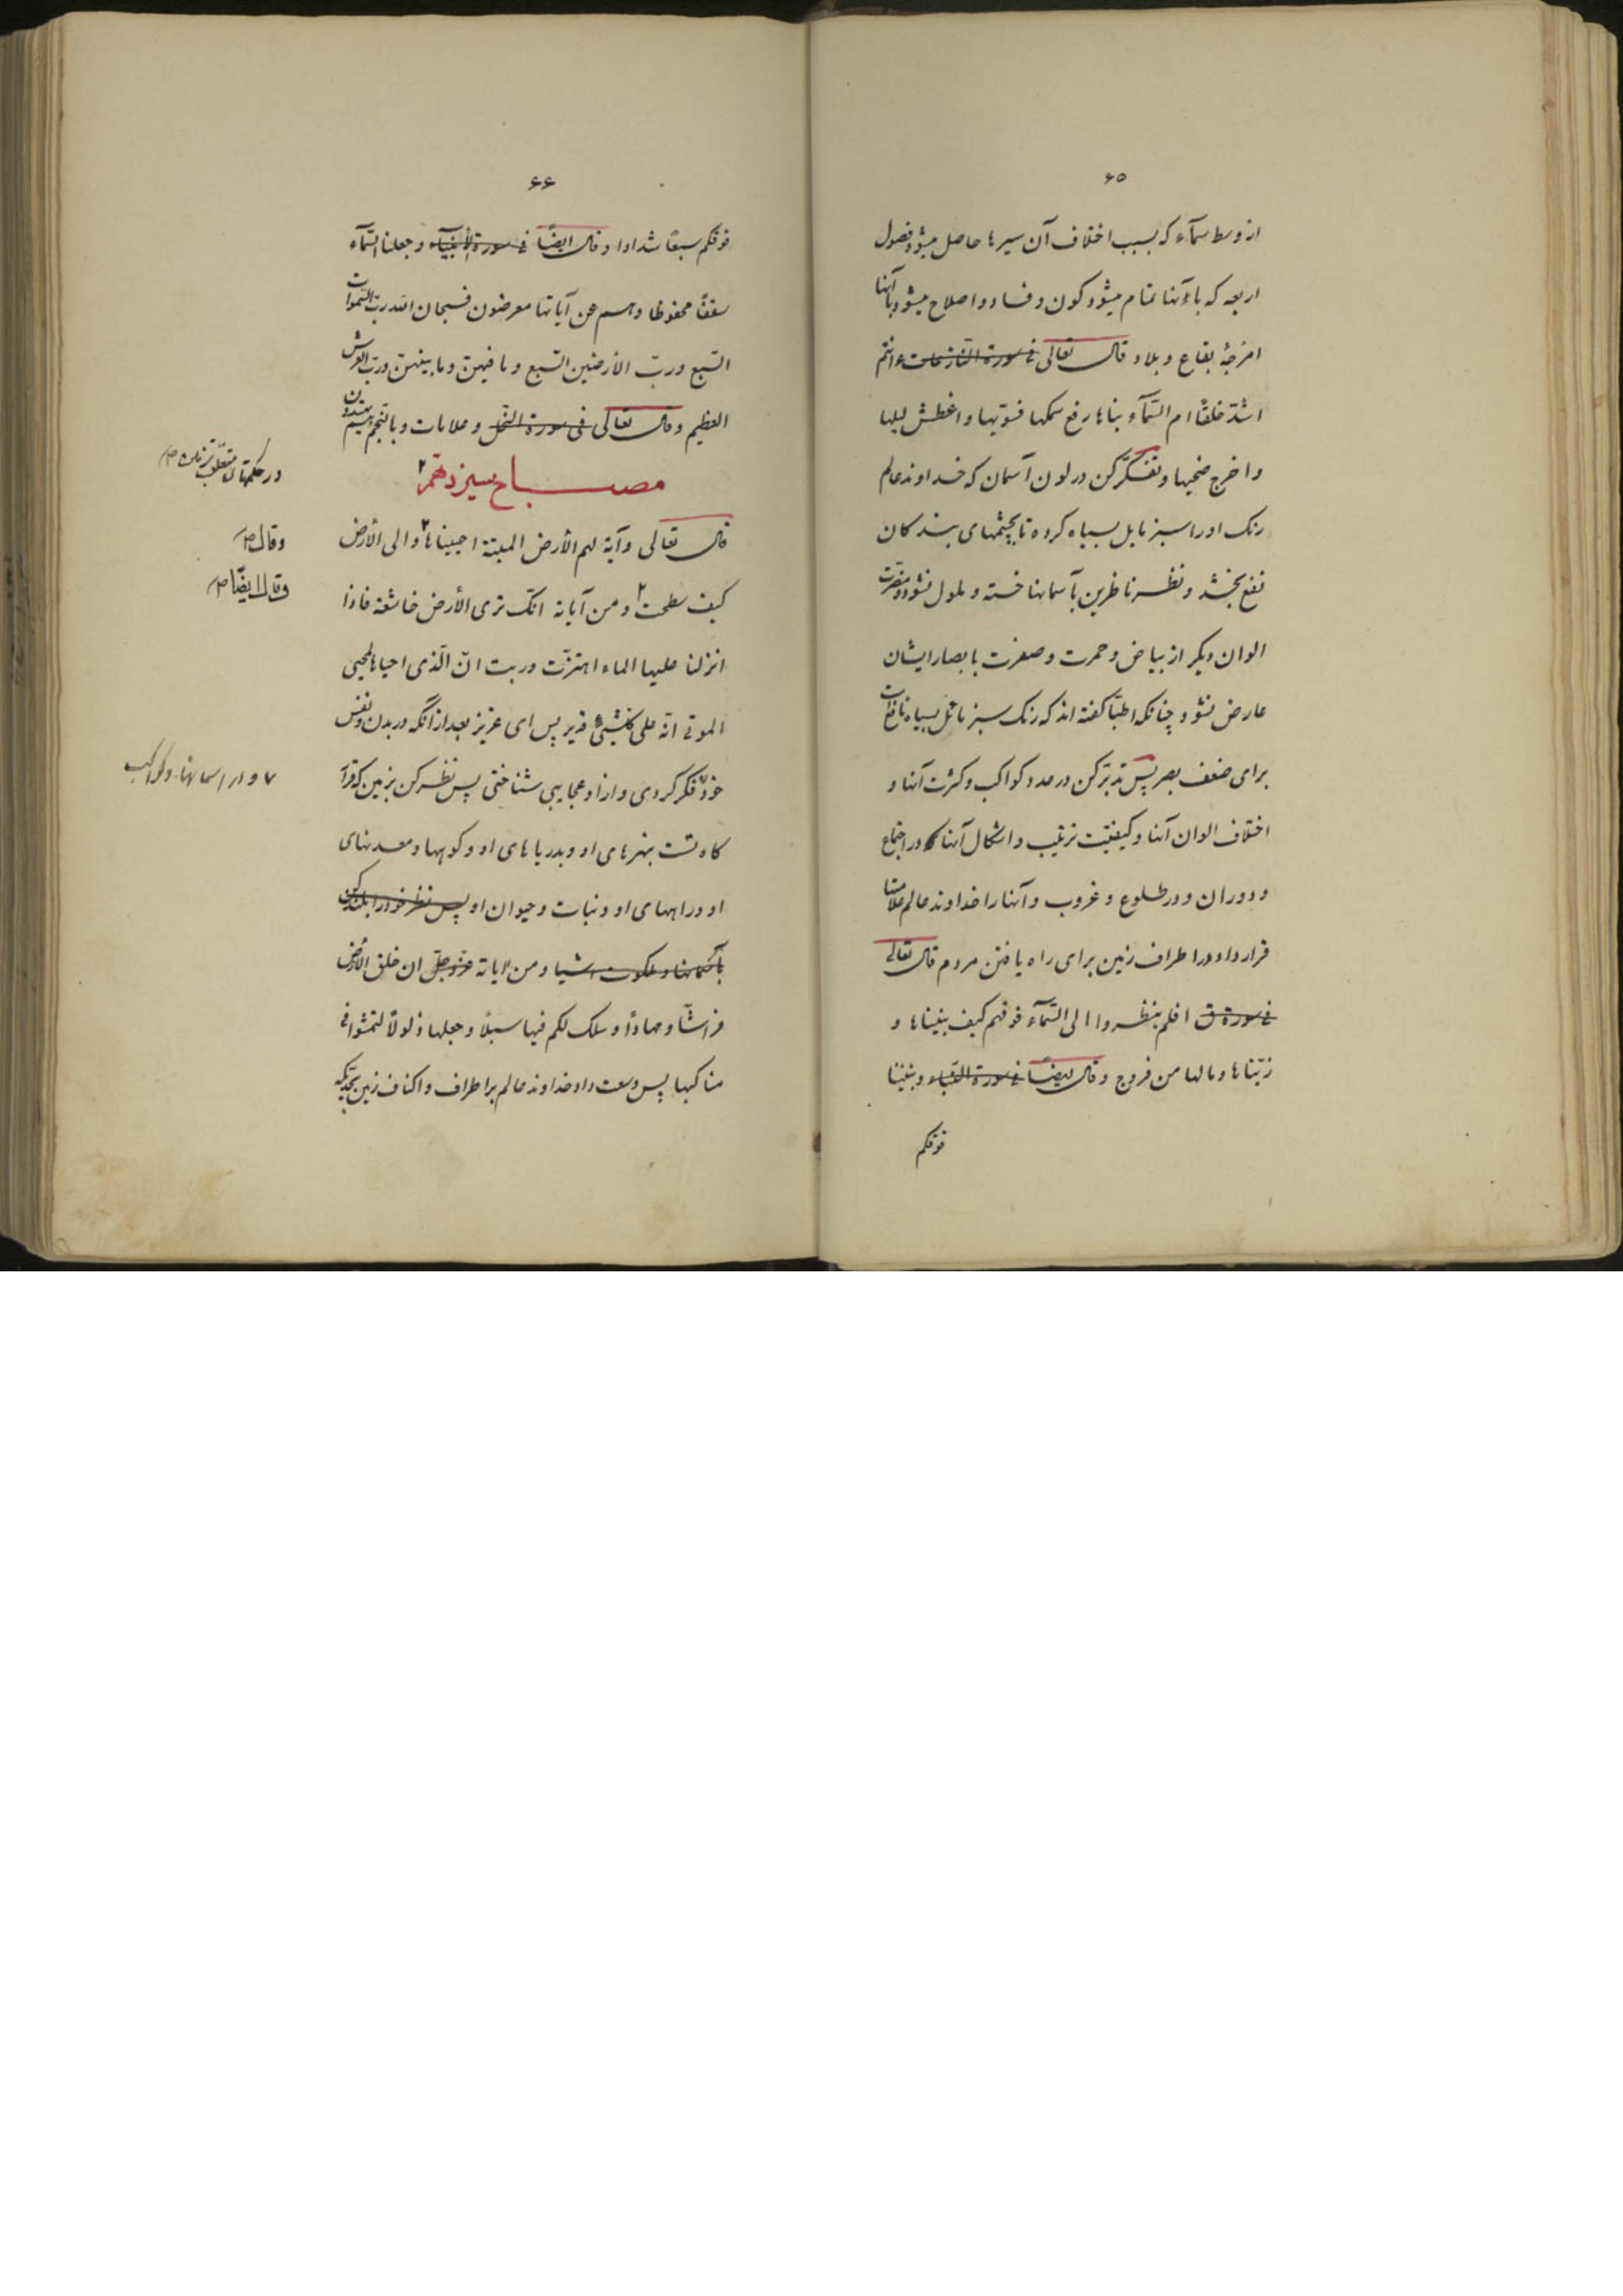 ۶۵
از وسط سمآء که بسبب اختلاف آن سیرها حاصل میشود فصول
اربعه که بآنها تمام میشود کون و فساد و اصلاح میشود بآنها
امزجهٔ بقاع و بلاد قال تعالی فی سورة النازعات ءانتم
اشدّ خلقًا ام السّمآء بناها رفع سمکها فسوّیها و اغطش لیلها
و اخرج ضحیها و تفکّر کن در لون آسمان که خداوند عالم
رنک او را سبز مایل بسیاه کرده تا بچشمهای بندکان
نفع بخشد و نظر ناظرین بآسمانها خسته و ملول نشود و مضرّت
الوان دیکر از بیاض و حمرت و صفرت بابصار ایشان
عارض نشود چنانکه اطبّا کفته اند که رنک سبز مائل بسیاه نافع است
برای ضعف بصر پس تدبّر کن در عدد کواکب و کثرت آنها و
اختلاف الوان آنها و کیفیّت ترتیب و اشکال آنها در اجتماع
و دوران و در طلوع و غروب و آنها را خداوند عالم علامتها
قرار داد در اطراف زمین برای راه یافتن مردم قال تعالی
فی سورة ق افلم ینظروا الی السّمآء فوقهم کیف بنیناها و
زیّنّاها و مالها من فروج و قال ایضًا فی سورة النّباء و بنینا
فوقکم
۶۶
فوقکم سبعًا شدادا و قال ایضًا فی سورة الأنبیآء و جعلنا السّمآء
سقفًا محفوظا و هم عن آیاتها معرضون فسبحان الله ربّ السّموات
السّبع و ربّ الأرضین السّبع و ما فیهنّ و ما بینهنّ و ربّ العرش
العظیم و قال تعالی فی سورة النّحل و علامات و بالنّجم هم یهتدون
مصباح سیزدهم
در حکمتهای متعلّقه بزمین
قال تعالی و آیة لهم الأرض المیتة احییناها و الی الأرض
و قال
کیف سطحت و من آیاته انّک تری الأرض خاشعة فاذا
و قال ایضًا
انزلنا علیها الماء اهتزّت و ربت انّ الّذی احیاها لمحیی
الموتی انّه علی کلّ شیئ قدیر پس ای عزیز بعد از آنکه در بدن و نفس
خود فکر کردی و از او عجایبی شناختی پس نظر کن بزمین که قرار
و در اسمانها و کواکب
کاه تست بنهرهای او و بدریاهای او و کوهها و معدنهای
او و راههای او و نبات و حیوان او پس نظر خود را بلند کن
بآسمانها و ملکوت اشیا و من آیاته عزّ و جلّ ان خلق الأرض
فراشًا و مهادًا و سلک لکم فیها سبلًا و جعلها ذلولًا لتمشوا فی
مناکبها پس وسعت داد خداوند عالم بر اطراف و اکناف زمین بحدّیکه